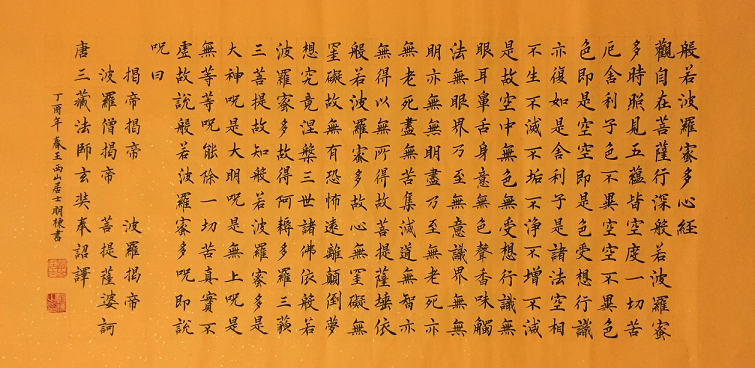 般若波羅蜜多心経
觀自在菩薩行深般若波羅蜜
多時照見五蘊皆空度一切苦
厄舍利子色不異空空不異色
色即是空空即是色受想行識
亦復如是舍利子是諸法空相
不生不滅不垢不淨不增不減
是故空中無色無受想行識無
眼耳鼻舌身意無色聲香味觸
法無眼界乃至無意識界無無
明亦無無明盡乃至無老死亦
無老死盡無苦集滅道無智亦
無得以無所得故菩提薩埵依
般若波羅蜜多故心無罣礙無
罣礙故無有恐怖遠離顛倒夢
想究竟涅槃三世諸佛依般若
波羅蜜多故得阿耨多羅三藐
三菩提故知般若波羅蜜多是
大神呪是大明呪是無上呪是
無等等呪能除一切苦真實不
虛故說般若波羅蜜多呪即說
呪曰
揭帝揭帝 波羅揭帝
波羅僧揭帝 菩提薩婆訶
唐三藏法師玄奘奉詔譯
丁酉年 西山居士 棟書